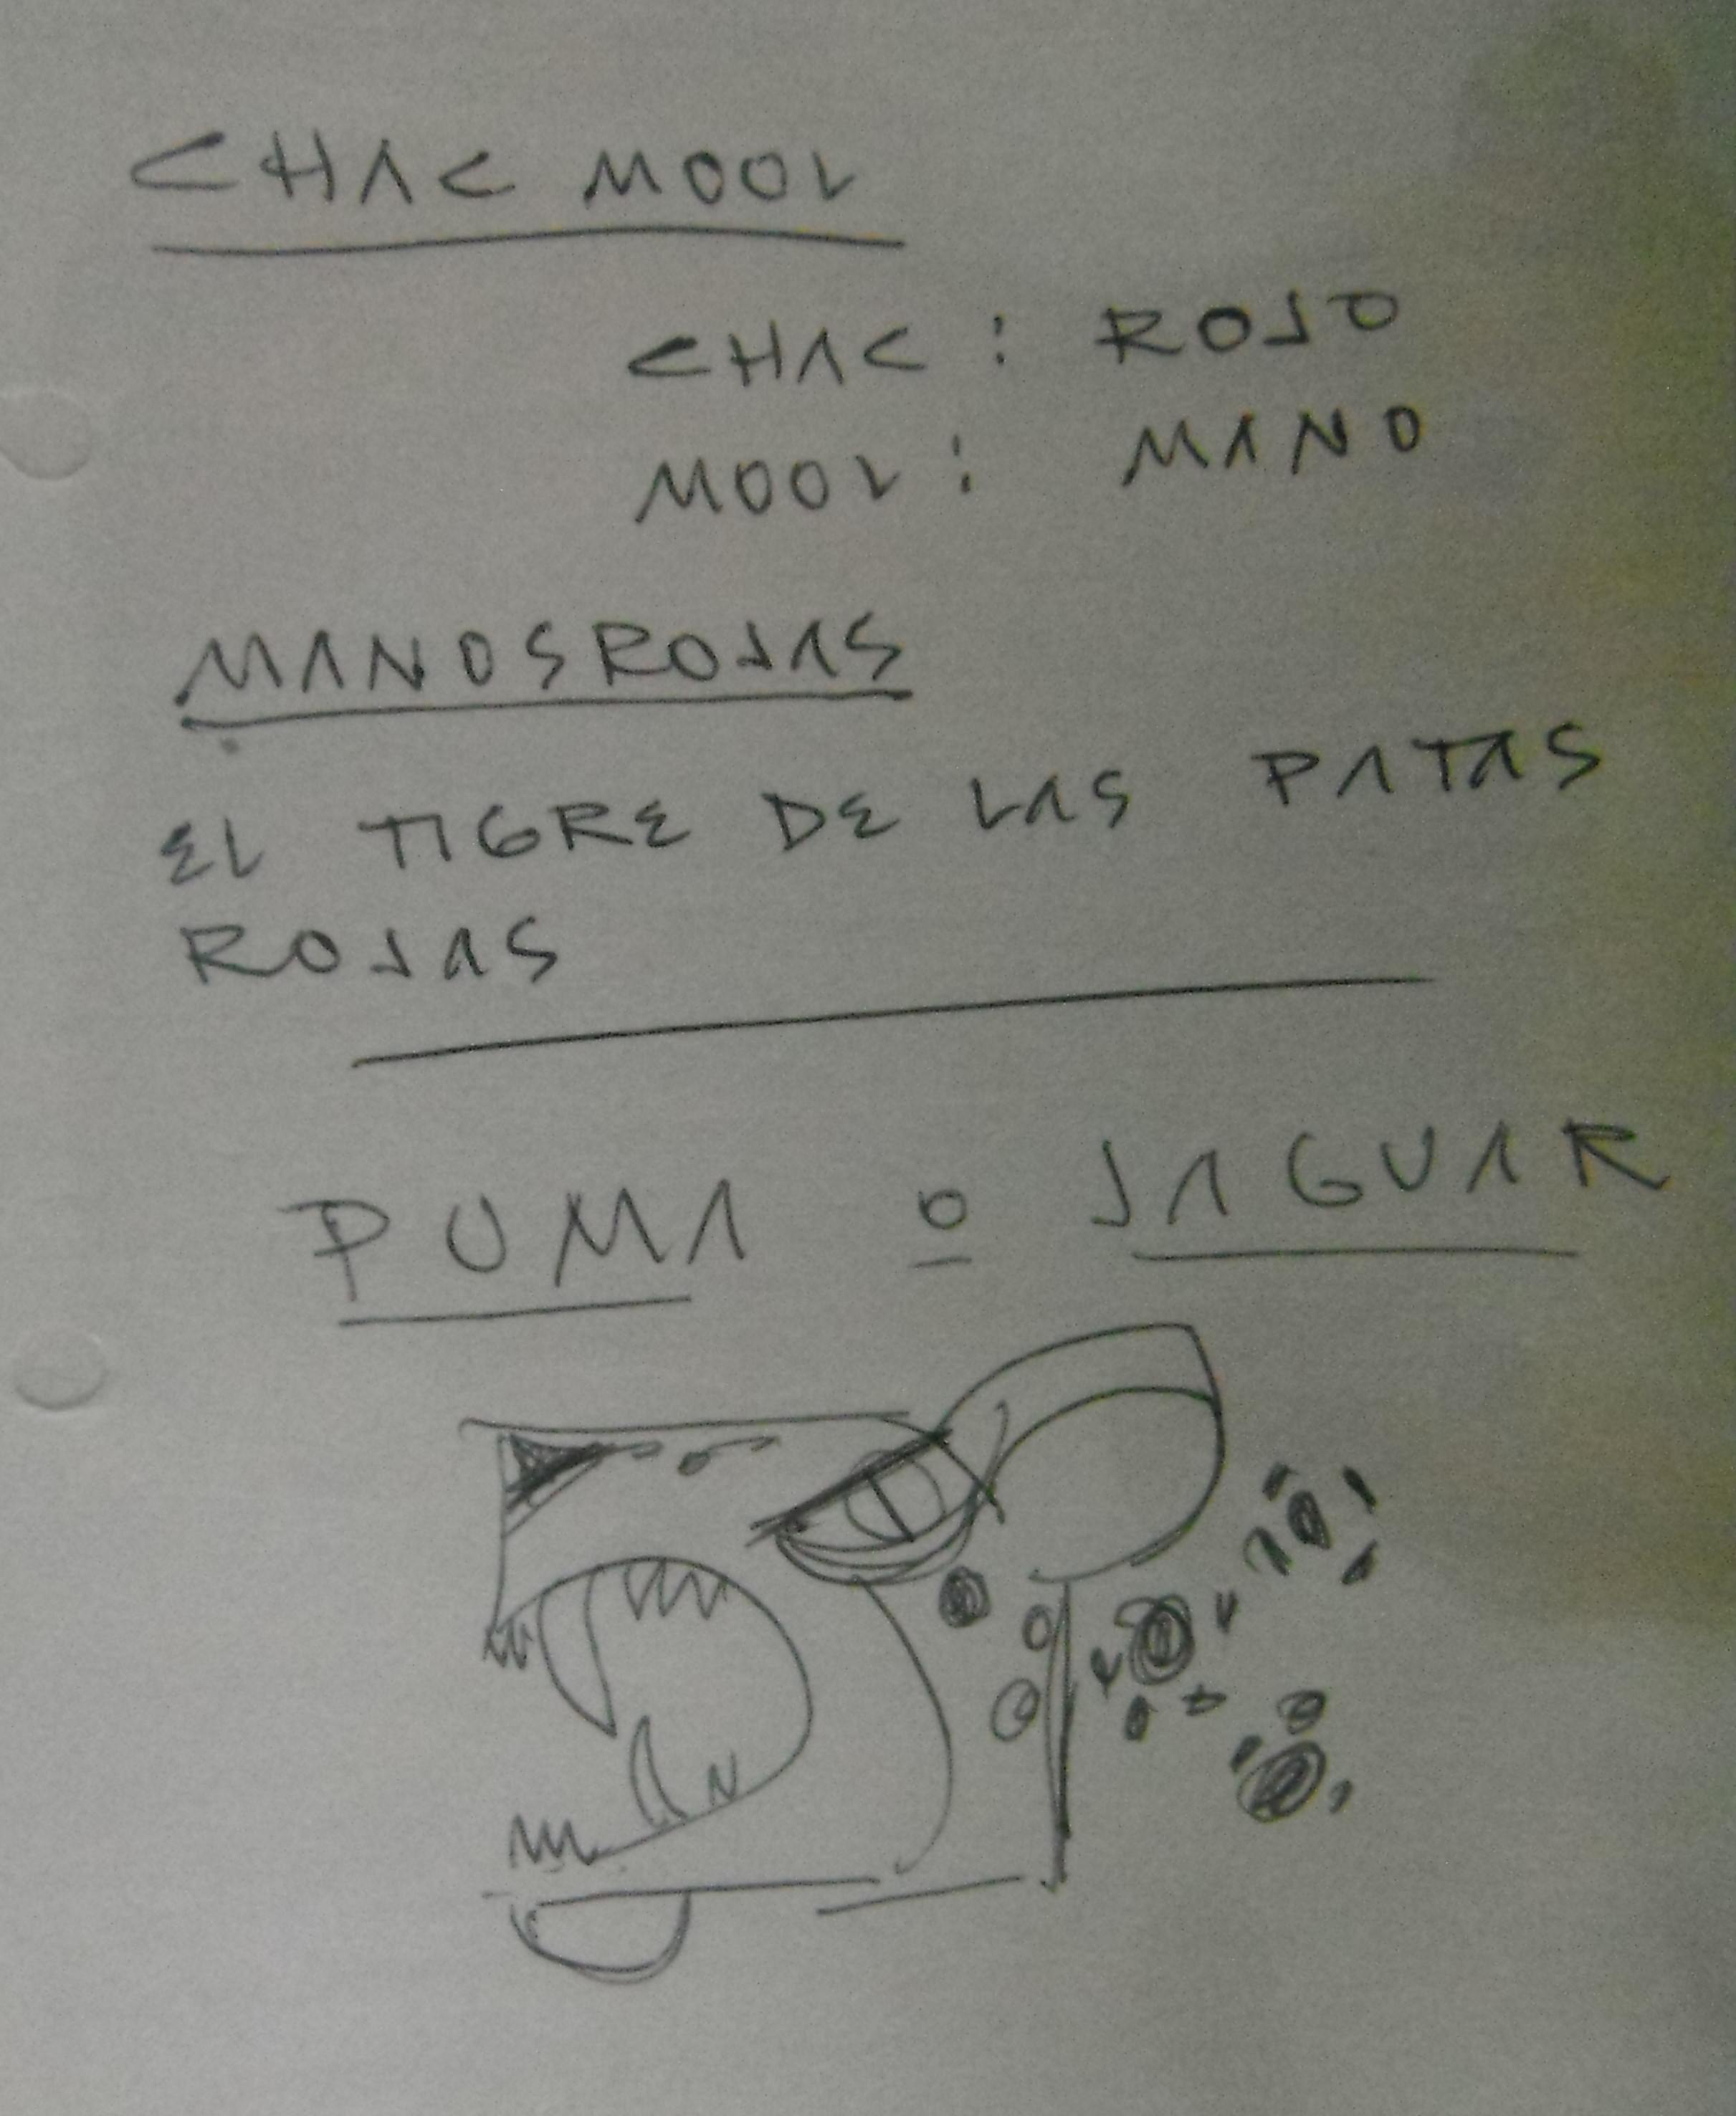 CHAC MOOL
CHAC : ROJO
MOOL : MANO
MANOS ROJAS
EL TIGRE DE LAS PATAS
ROJAS
PUMA o JAGUAR